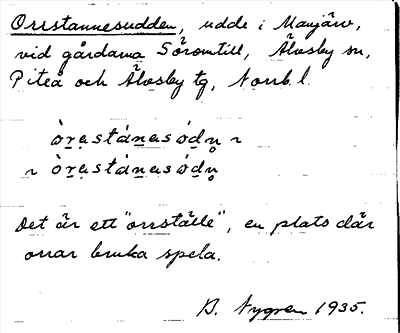 Orrstannesudden, udde i Manjärv,
vid gårdarna Söromtill, Älvsby sn,
Piteå och Älvsby tg, Norrb. l.
òr̠a̠stán̠a̠sódn̥ ~
~ òr̠a̠stán̠a̠sódn̥
Det är ett "orrställe", en plats där
orrar bruka spela.
B. Nygren 1935.